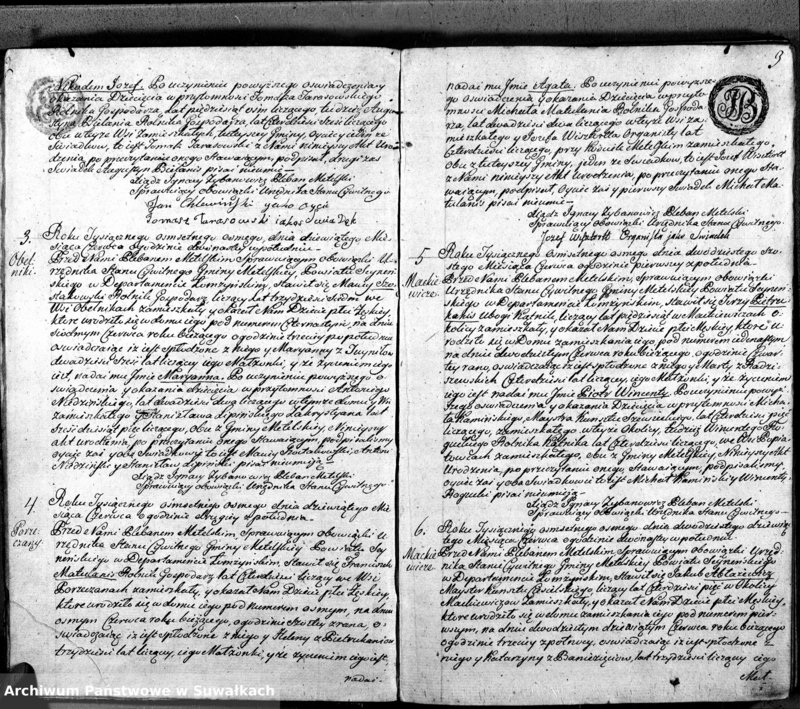 Nikodem Jozef. Po uczynieniu powyższego oswiadczenia y
okazania Dziecięcia w przytomnosci Tomasza Tarasowskiego
Rolnika Gospodarza, lat pięcdziesiąt osm liczącego, tudzież Augu-
styna Rolnika Gospodarza, lat czterdziesci szesc liczącego
w teyże Wsi zamieszkałych, tuteyszey Gminy, oyciec zatem ze
Swiadkow, to iest Tomasz Tarasowski z Nami ninieyszy Akt Uro-
dzenia po przeczytaniu onego Stawaiącym, podpisał, drugi zas
Swiadek Augustyn pisac nieumie —
Xiądz Ignacy Zybanowicz Pleban Metelski
Sprawuiący Obowiązki Urzędnika Stanu Cywilnego
Jan Chlewiński jako Oyciec
Tomasz Tarasowski iako Swiadek
3.
Obel-
niki.
Roku Tysiącznego osmsetnego osmego, dnia dziewiątego Mie-
siąca Czerwca o godzinie dwunastey w południe —
Przed Nami Plebanem Metelskim Sprawuiącym obowiązki U-
rzędnika Stanu Cywilnego Gminy Metelskiey, Powiatu Seyneń-
skiego w Departamencie Łomżyńskim, Stawił się Maciey
Rolnik Gospodarz liczący lat trzydziesci siedm we
Wsi Obelnikach zamieszkały y okazał Nam Dziecie płci Zęskiey,
ktore urodziło się w domu iego pod numerem czternastym, na dniu
siodmym Czerwca roku bieżącego o godzinie trzeciey po południu
oswiadczaiąc iż iest spłodzone z niego y Maryanny z
lat liczącey iego Małżonki, y że życzeniem iego
iest, nadać mu Jmie Maryanna. Po uczynieniu powyższego o-
swiadczenia y okazania dziecięcia, w przytomnosci Antoniego
lat dwadziescia dwa liczącego w teyże Wsi
zamieszkałego y Stanisława Lipinskiego Zakrystyana lat
szescdziesiąt pięc liczącego, obu z Gminy Metelskiey, Ninieyszy
Akt urodzenia, po przeczytaniu onego Stawaiącym podpisalismy,
oyciec zas y oba Swiadkowie to iest Maciey Antoni
y Stanisław Lipinski pisac nieumieią —
Xiądz Ignacy Zybanowicz Pleban Metelski
Sprawuiący obowiązki Urzędnika Stanu Cywilnego
4.
Porze-
czany
Roku Tysiącznego osmsetnego osmego dnia dziewiątego Mie-
siąca Czerwca o godzinie drugiey po południu.
Przed Nami Plebanem Metelskim Sprawuiącym obowiązki U-
rzędnika Stanu Cywilnego Gminy Metelskiey Powiatu Sey-
neńskiego w Departamencie Łomżyńskim Stawił się Franciszek
Matulanis Rolnik Gospodarz lat czterdziesci liczący we Wsi
zamieszkały, y okazał Nam Dziecie płci Zęskiey,
ktore urodziło się w domu iego pod Numerem osmym, na dniu
osmym Czerwca roku bieżącego, o godzinie szostey zrana, o-
swiadczaiąc iż iest spłodzone z niego y Heleny z
trzydziesci liczącey, iego Małżonki, y że życzeniem iego iest,
nadać
3
nadać mu Jmie Agata. Po uczynieniu powyższe-
go oswiadczenia y okazania Dziecięcia w przyto-
mnosci Michała Matulania Rolnika Gospoda-
rza, lat dwadziescia dwa liczącego w teyże Wsi za-
mieszkałego y Jozefa Organisty lat
czterdziesci liczącego, przy Kosciele Metelskim zamieszkałego,
Obu z tuteyszey Gminy, ieden ze Swiadkow, to iest Jozef
z Nami ninieyszy Akt Urodzenia, po przeczytaniu onego Sta-
waiącym, podpisał, Oyciec zas y pierwszy Swiadek Michał Ma-
tulanis pisac nieumie —
Xiądz Ignacy Zybanowicz Pleban Metelski
Sprawuiący Obowiązki Urzędnika Stanu Cywilnego
Jozef Organista jako Swiadek
5
Mackie-
wicze.
Roku Tysiącznego Osmsetnego osmego dnia dwudziestego szo-
stego Miesiąca Czerwca o godzinie pierwszey z południa.
Przed Nami Plebanem Metelskim, Sprawuiącym obowiązki
Urzędnika Stanu Cywilnego Gminy Metelskiey Powiatu Seyneń-
skiego w Departamencie Łomżyńskim, stawił się Jerzy Pietru-
kanis Ubogi Kątnik, liczący lat pięcdziesiąt w Mackiewiczach O-
kolicy zamieszkały, y okazał Nam dziecie płci Męskiey, ktore u-
rodziło się w Domu zamieszkania iego pod numerem iedenastym
na dniu dwudziestym Czerwca roku bieżącego, o godzinie czwar-
tey rano, oswiadczaiąc iż iest spłodzone z niego y Marty z
czterdziesci lat liczącey, iego Małżonki, y że życzeniem
iego iest nadać mu Jmie Piotr Wincenty. Po uczynieniu powyż-
szego oswiadczenia y okazania Dziecięcia, w przytomnosci Micha-
ła Kamińskiego, Maystra Kunsztu Szewskiego, lat czterdziesci pięć
liczącego, zamieszkałego w teyże Okolicy, tudzież Wincentego
Rolnika Kątnika lat czterdziesci liczącego, we Wsi
zamieszkałego, obu z Gminy Metelskiey, Ninieyszy Akt
Urodzenia, po przeczytaniu onego, Stawaiącym, podpisalismy,
Oyciec zas y oba Swiadkowie to iest Michał Kamiński y Wincenty
pisac nieumieią —
Xiądz Ignacy Zybanowicz Pleban Metelski
Sprawuiący Obowiązki Urzędnika Stanu Cywilnego —
6.
Mackie-
wicze
Roku Tysiącznego osmsetnego osmego dnia dwudziestego dziewią-
tego Miesiąca Czerwca o godzinie dwunastey w południe.
Przed Nami Plebanem Metelskim Sprawuiącym obowiązki Urzęd-
nika Stanu Cywilnego Gminy Metelskiey Powiatu Seyneńskiego
w Departamencie Łomżyńskim, Stawił się Jakub Ablazewicz
Mayster Kunsztu Ciesielskiego liczący lat czterdziesci pięc w Okolicy
Mackiewiczow zamieszkały, y okazał Nam Dziecie płci Męskiey,
ktore urodziło się w domu zamieszkania iego pod numerem pier-
wszym, na dniu dwudziestym dziewiątym Czerwca roku bieżącego
o godzinie trzeciey z połnocy, oswiadczaiąc iż iest spłodzone z
niego y Katarzyny z lat trzydziesci liczącey iego
Archiwum Państwowe w Suwałkach